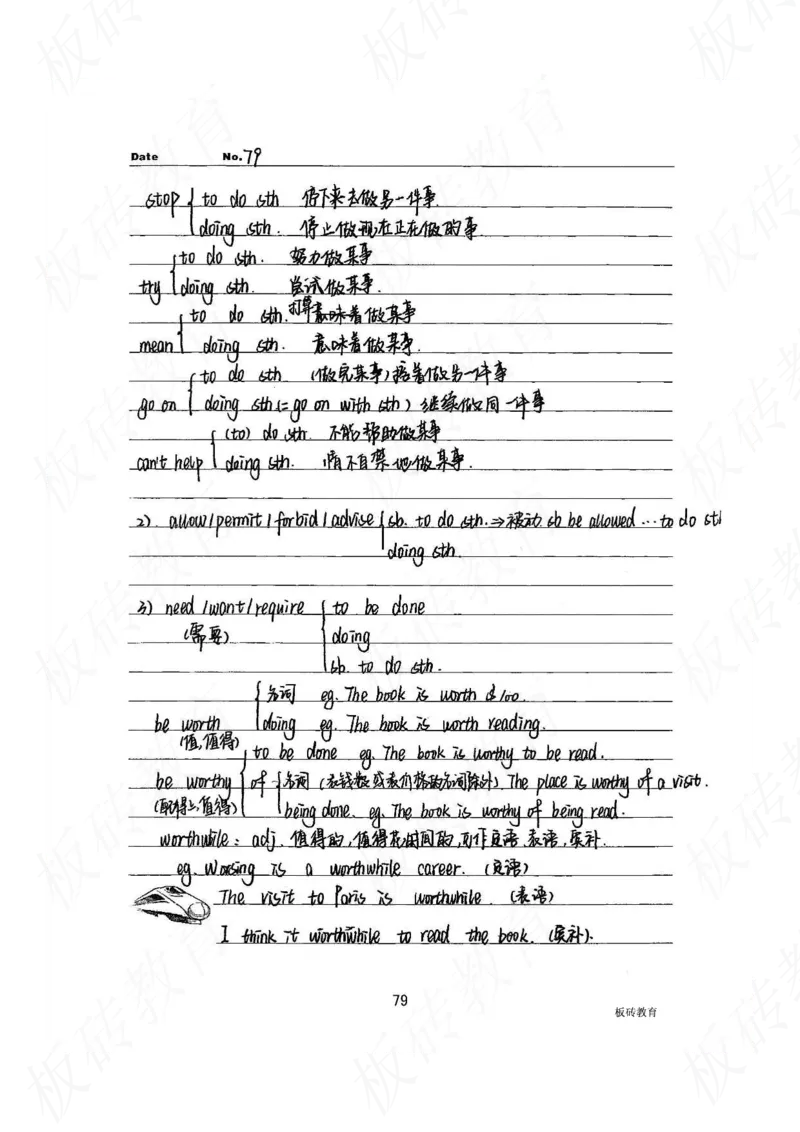 Date No.79
stop { to do sth 停下来去做另一件事.
doing sth. 停止做现在正在做的事
try { to do sth. 努力做某事
doing sth. 尝试做某事.
mean { to do sth. 打算意味着做某事
doing sth. 意味着做某事.
go on { to do sth (做完某事)接着做另一件事
doing sth (=go on with sth) 继续做同一件事
can't help { (to) do sth. 不能帮助做某事
doing sth. 情不自禁地做某事.
2) allow/permit/forbid/advise { sb. to do sth. ⇒被动 sb be allowed … to do sth
doing sth.
3) need/want/require { to be done
(需要) doing
sb. to do sth.
be worth { 名词 eg. The book is worth $100.
(值,值得) doing eg. The book is worth reading.
be worthy { to be done eg. The book is worthy to be read.
(配得上,值得) of { 名词 (表钱数或表价格的名词除外) The place is worthy of a visit.
being done. eg. The book is worthy of being read.
worthwhile: adj. 值得的,值得花时间的,可作定语.表语,宾补.
eg. is a worthwhile career. (定语)
The visit to Paris is worthwhile. (表语)
I think it worthwhile to read the book. (宾补).
79
板砖教育